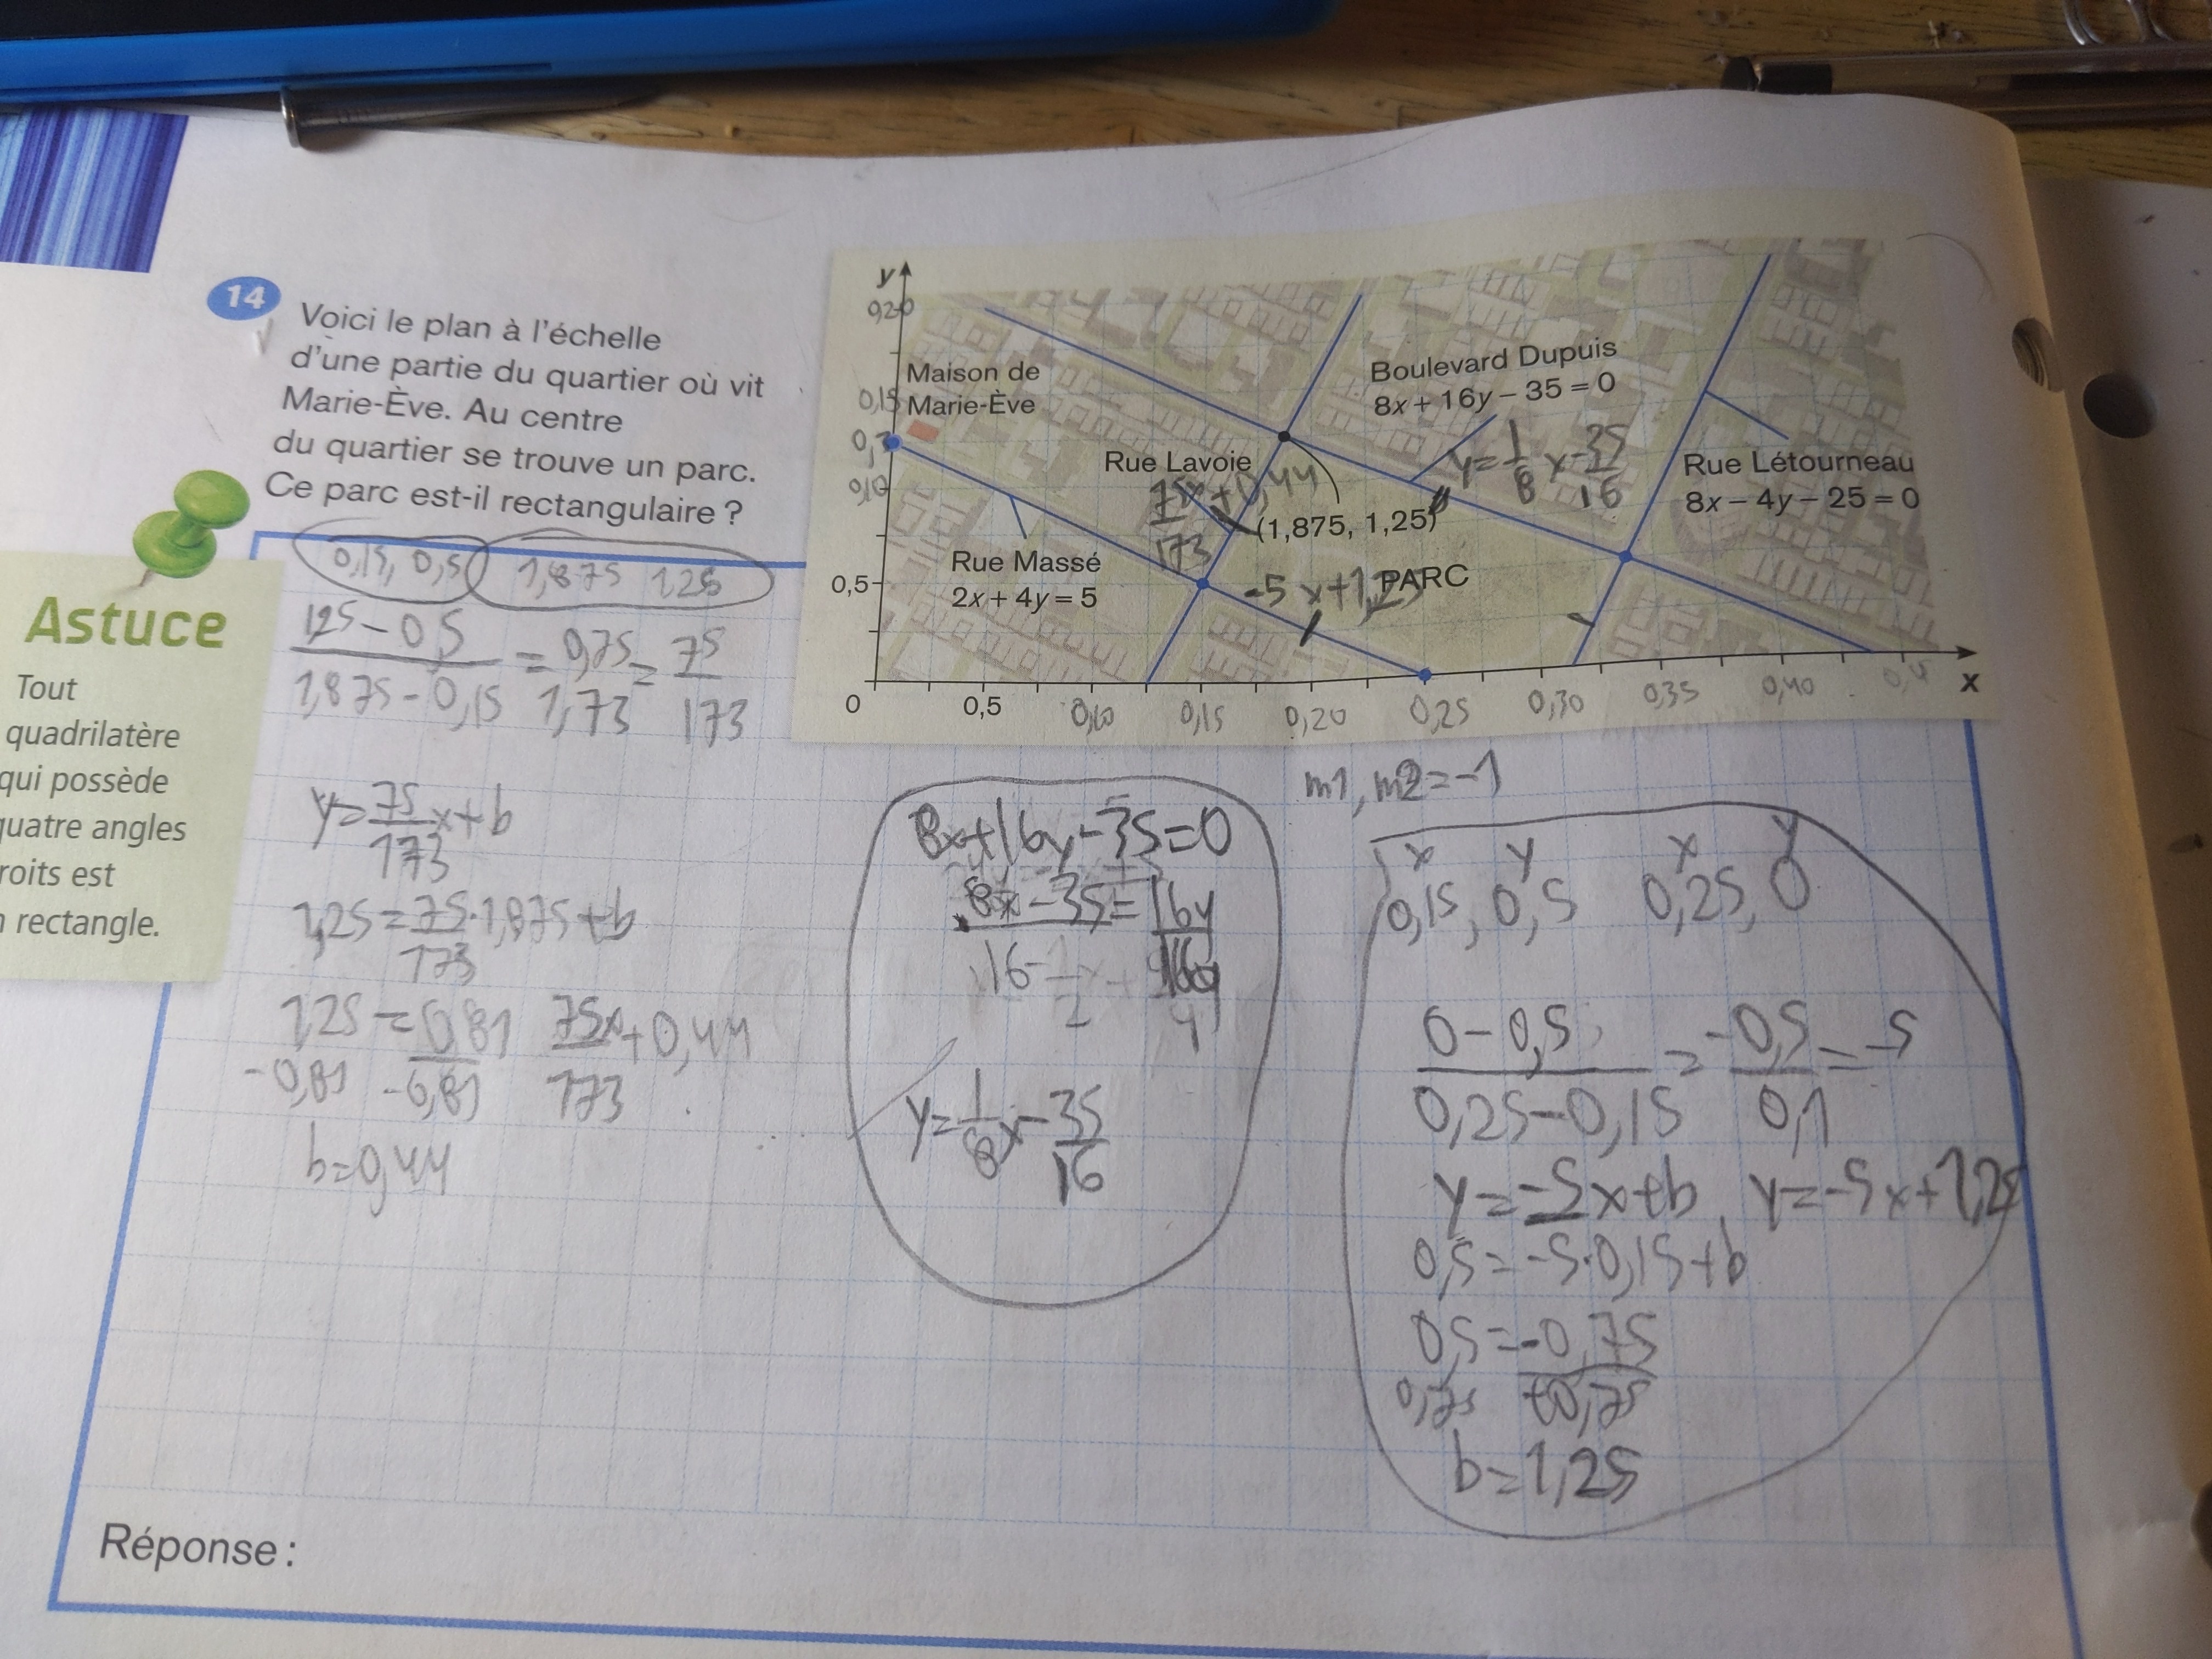 14
Voici le plan à l'échelle
d'une partie du quartier où vit
Marie-Ève. Au centre
du quartier se trouve un parc.
Ce parc est-il rectangulaire ?
Astuce
Tout
quadrilatère
qui possède
quatre angles
roits est
rectangle.
y
0,20
0,15
0,10
0,5
0
Maison de
Marie-Ève
Rue Massé
2x + 4y = 5
Rue Lavoie
75x+0,44
173
(1,875, 1,25)
Boulevard Dupuis
8x + 16y – 35 = 0
y=1/8 x-35/16
Rue Létourneau
8x – 4y – 25 = 0
-5x+1,25
PARC
0,5
0,10
0,15
0,20
0,25
0,30
0,35
0,40
x
0,15, 0,5 1,875 1,25
125-0,5 / 1,875-0,15 = 0,75/1,73 = 75/173
y=75/173 x+b
1,25=75/173·1,875+b
1,25=0,81 75x/173+0,44
-0,81 -0,81
b=0,44
8x+16y-35=0
8x-35=16y
16
y=1/8x-35/16
m1, m2=-1
x y x y
0,15, 0,5 0,25, 0
0-0,5 / 0,25-0,15 = -0,5/0,1 = -5
y=-5x+b y=-5x+1,25
0,5=-5·0,15+b
0,5=-0,75
0,75 +0,75
b=1,25
Réponse :